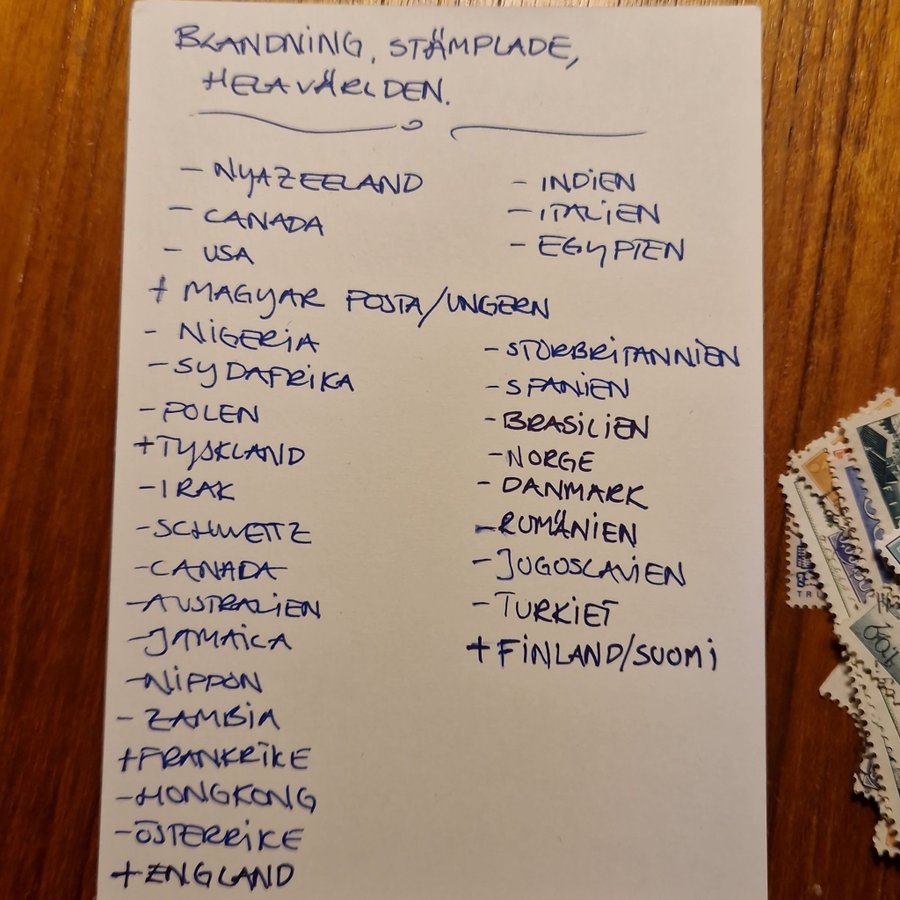 BLANDNING, STÄMPLADE,
HELA VÄRLDEN.
- NYAZEELAND
- CANADA
- USA
+ MAGYAR POSTA/UNGERN
- NIGERIA
- SYDAFRIKA
- POLEN
+ TYSKLAND
- IRAK
- SCHWEITZ
- CANADA
- AUSTRALIEN
- JAMAICA
- NIPPON
- ZAMBIA
+ FRANKRIKE
- HONGKONG
- ÖSTERRIKE
+ ENGLAND
- INDIEN
- ITALIEN
- EGYPTEN
- STORBRITANNIEN
- SPANIEN
- BRASILIEN
- NORGE
- DANMARK
- RUMÄNIEN
- JUGOSLAVIEN
- TURKIET
+ FINLAND/SUOMI